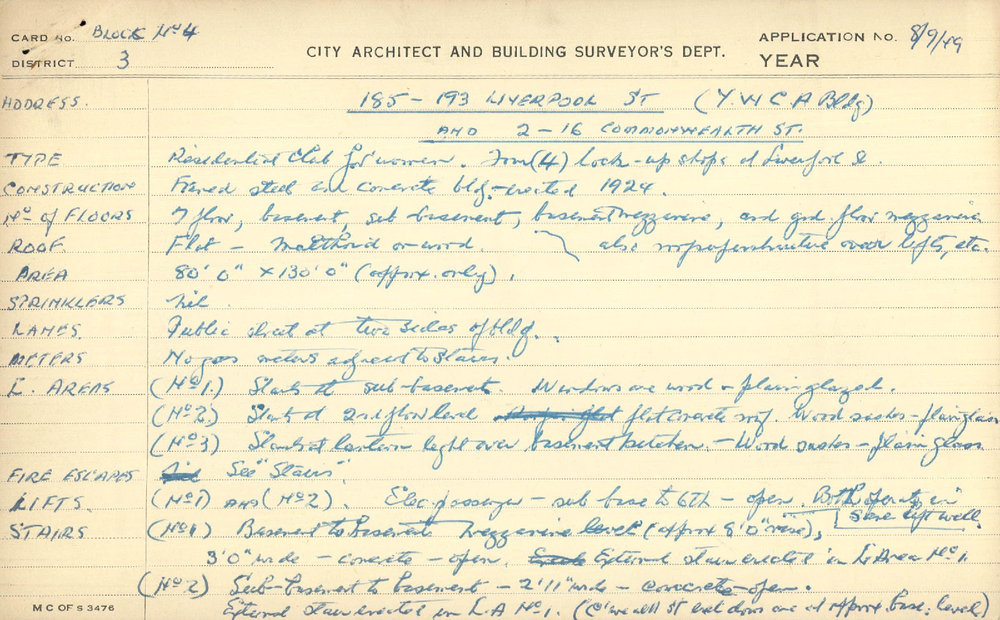 CARD NO. BLOCK Nº 4
DISTRICT 3
CITY ARCHITECT AND BUILDING SURVEYOR'S DEPT.
APPLICATION NO. 8/9/49
YEAR
ADDRESS. 185 – 193 LIVERPOOL ST (Y.W.C.A Bldg)
AND 2 – 16 COMMONWEALTH ST.
TYPE Residential Club for women. Four (4) lock-up shops at Liverpool St.
CONSTRUCTION Framed steel and concrete bldg – erected 1924.
Nº of FLOORS 7 floor, basement, sub basement, basement mezzanine, and grd. floor mezzanine
ROOF Flat – Malthoid on wood. also superstructure over lifts, etc.
AREA 80' 0" x 130' 0" (approx. only).
SPRINKLERS Nil.
LANES. Public street at two sides of bldg.
METERS No gas meters adjacent to stairs.
L. AREAS (Nº 1.) Starts at sub-basement. Windows are wood – plain glazed.
(Nº 2.) Start at 2nd floor level flat concrete roof. Wood sashes – plain glass
(Nº 3) Starts at lantern light over basement kitchen. – Wood sashes – plain glass.
FIRE ESCAPES Nil See "Stairs".
LIFTS. (Nº 1) AND (Nº 2). Elec. passenger – sub base to 6th – open. Both operate in same lift well.
STAIRS (Nº 1) Basement to basement mezzanine level (approx 8' 0" rise),
3' 0" wide – concrete – open. External stair erected in L. Area Nº 1.
(Nº 2) Sub-basement to basement – 2' 11" wide – concrete – open.
External stair erected in L.A Nº 1. (C'wealth St exit doors are at approx. base: level)
M C OF S 3476